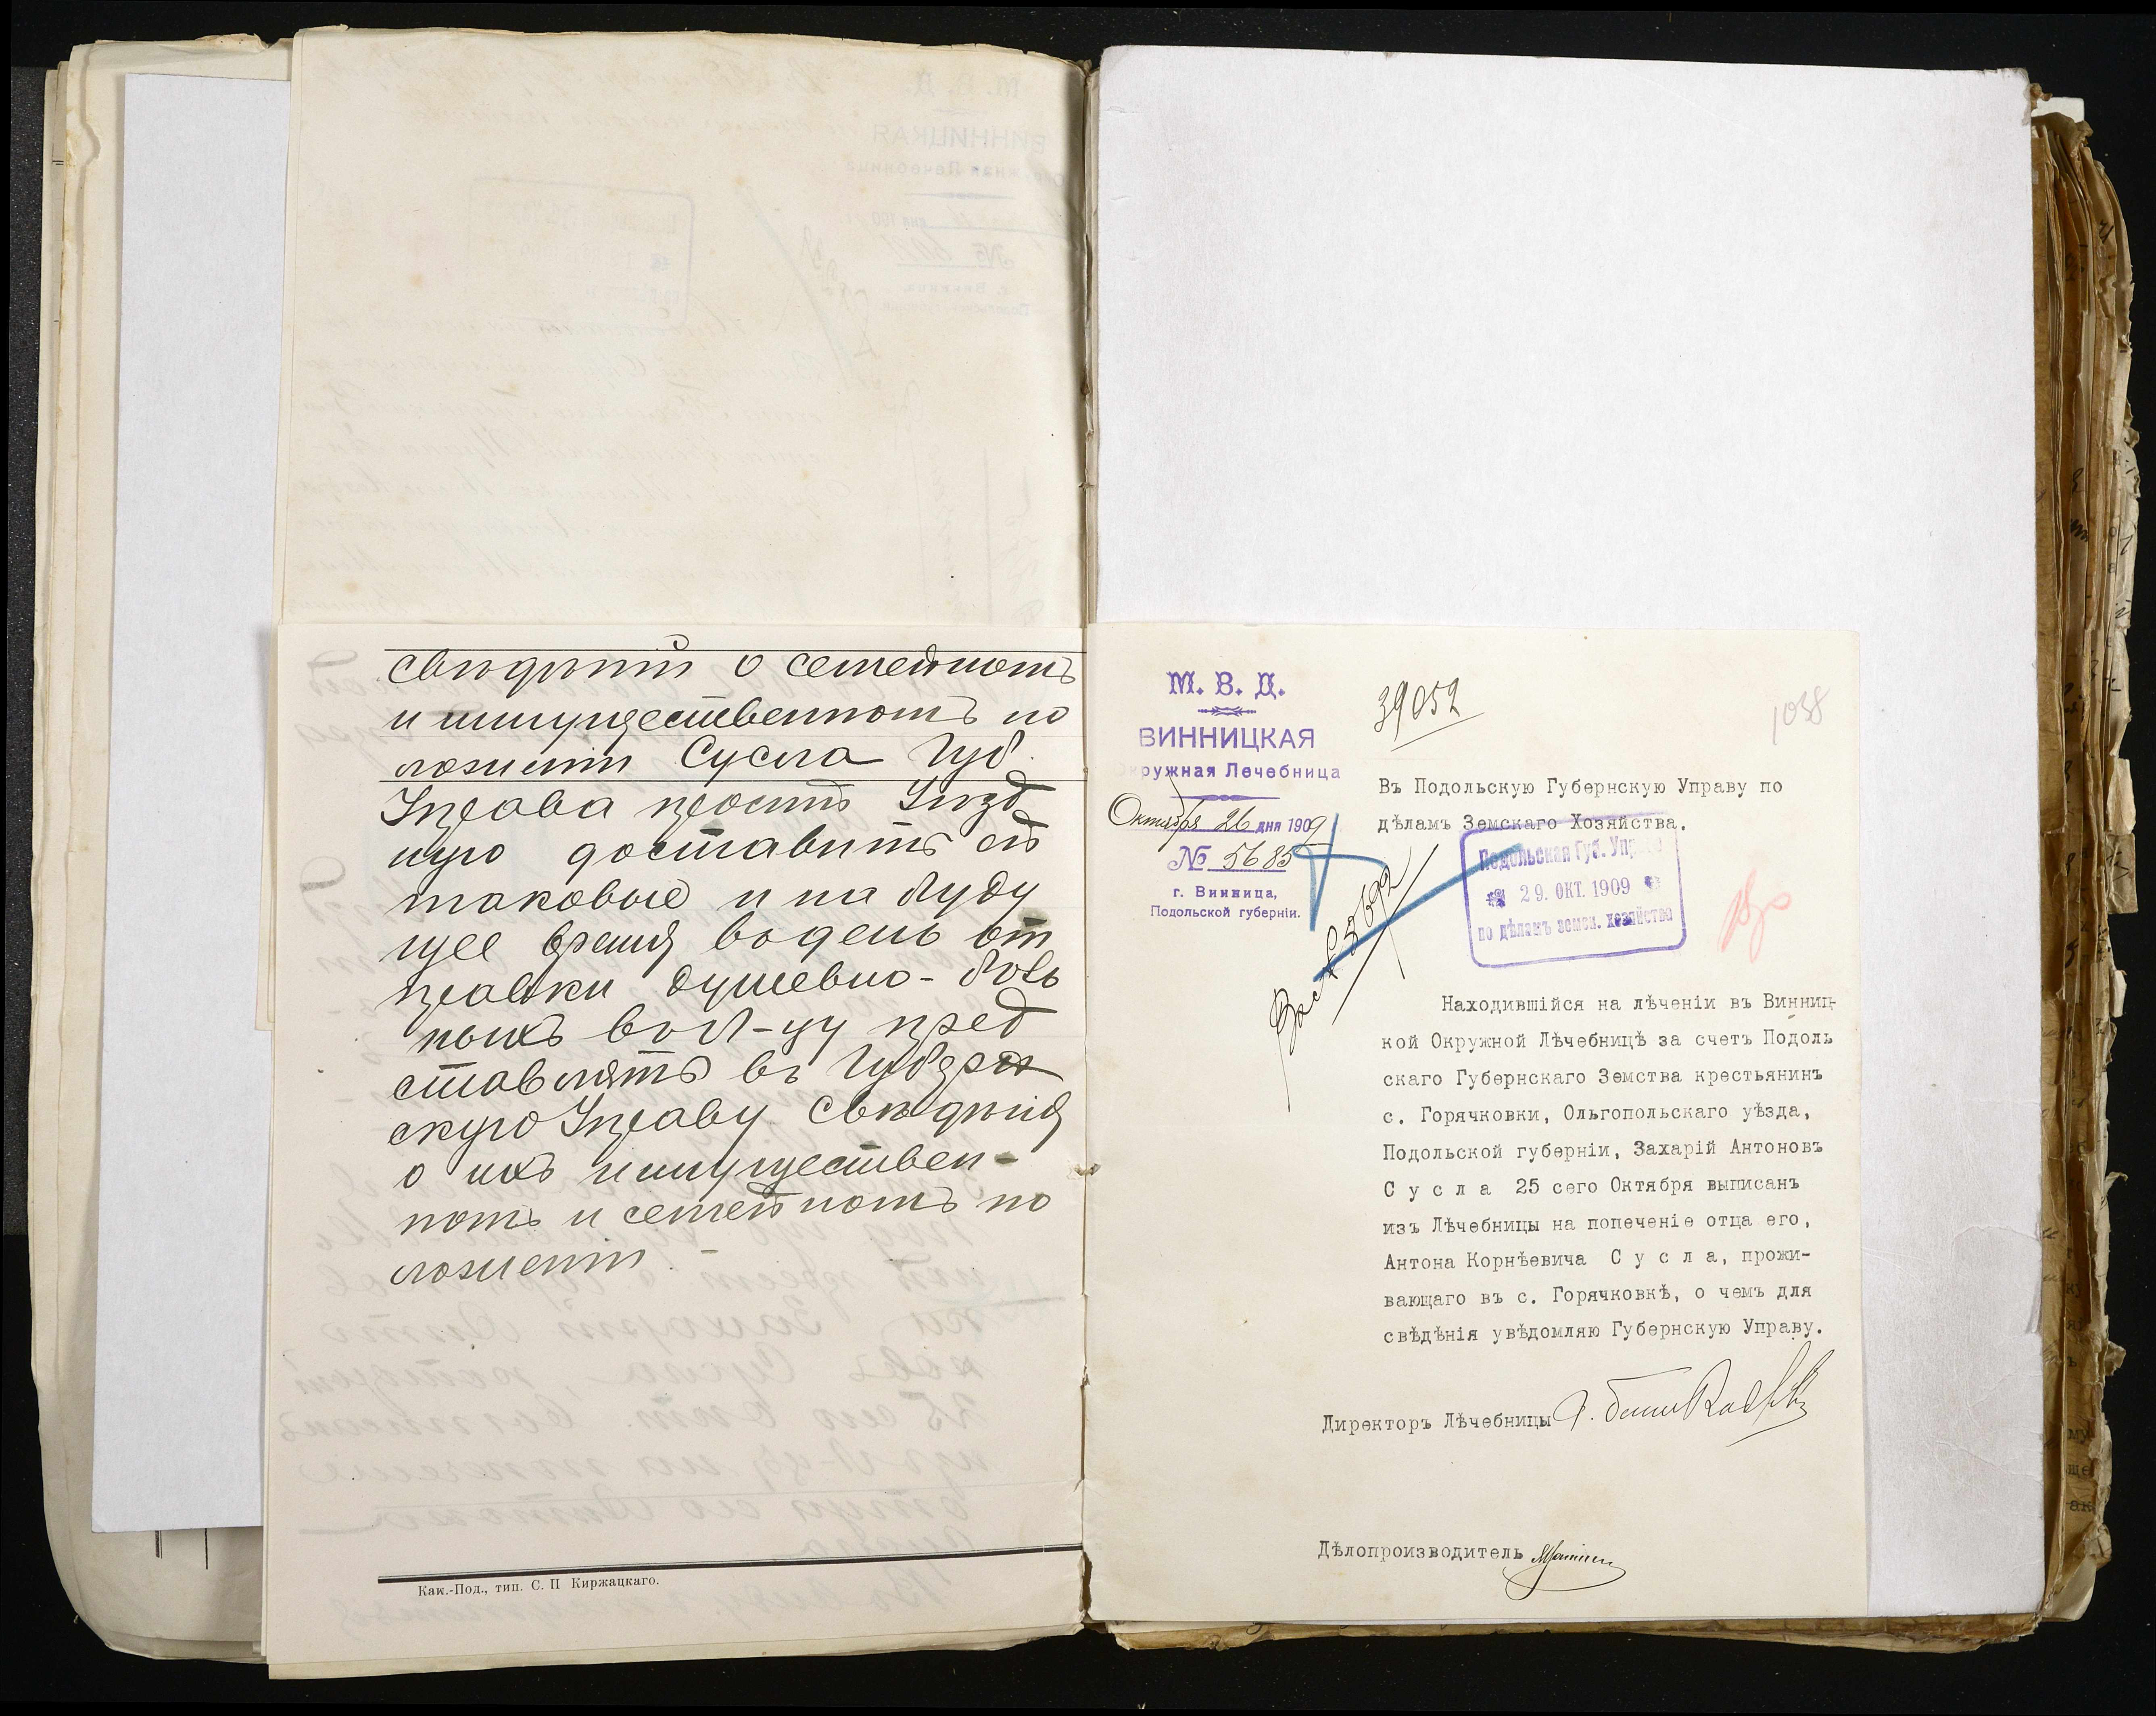 свѣдѣній о семейномъ
и имущественномъ по
ложеніи Сусла Губ.
Управа проситъ Уѣзд
ную доставить ей
таковые и на буду
щее время въ день от
правки душевно-боль
ныхъ въ Л-цу пред
ставлять въ Губерн
скую Управу свѣдѣнія
о ихъ имуществен-
номъ и семейномъ по
ложеніи.
Кам.-Под., тип. С. П Киржацкаго.
М. В. Д.
ВИННИЦКАЯ
Окружная Лечебница
Октября 26 дня 1909
№ 5685
г. Винница,
Подольской губерніи.
39052
1038
Въ Подольскую Губернскую Управу по
дѣламъ Земскаго Хозяйства.
Подольская Губ. Управа
29. ОКТ. 1909
по дѣламъ земск. хозяйства
Находившійся на лѣченіи въ Винниц-
кой Окружной Лѣчебницѣ за счетъ Подоль
скаго Губернскаго Земства крестьянинъ
с. Горячковки, Ольгопольскаго уѣзда,
Подольской губерніи, Захарій Антоновъ
С у с л а 25 сего Октября выписанъ
изъ Лѣчебницы на попеченіе отца его,
Антона Корнѣевича С у с л а, прожи-
вающаго въ с. Горячковкѣ, о чемъ для
свѣдѣнія увѣдомляю Губернскую Управу.
Директоръ Лѣчебницы
Дѣлопроизводитель